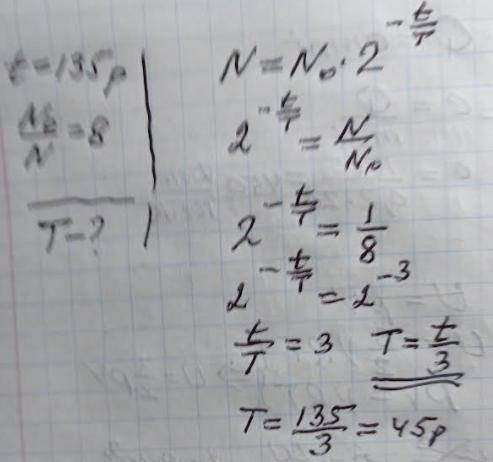 t = 135р
N₀/N = 8
T - ?
N = N₀ · 2^(-t/T)
2^(-t/T) = N/N₀
2^(-t/T) = 1/8
2^(-t/T) = 2^(-3)
t/T = 3 T = t/3
T = 135/3 = 45р